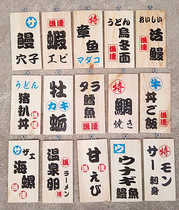 サ
鰻
穴子
蝦
エビ
特
章
魚
マダコ
うどん
烏
冬
面
おいしい
活
鰻
うどん
猪
扒
丼
牡
カキ
蛎
タラ
鱈
魚
特
鯛
焼き
牛
丼
ご
飯
サザエ
海
螺
温
泉
卵
ラーメン
甘
えび
ウ
ナ
ギ
鰻
魚
特
サーモン
刺身